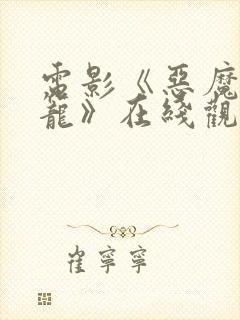 電影《惡魔
龍》在綫觀
崔寧寧